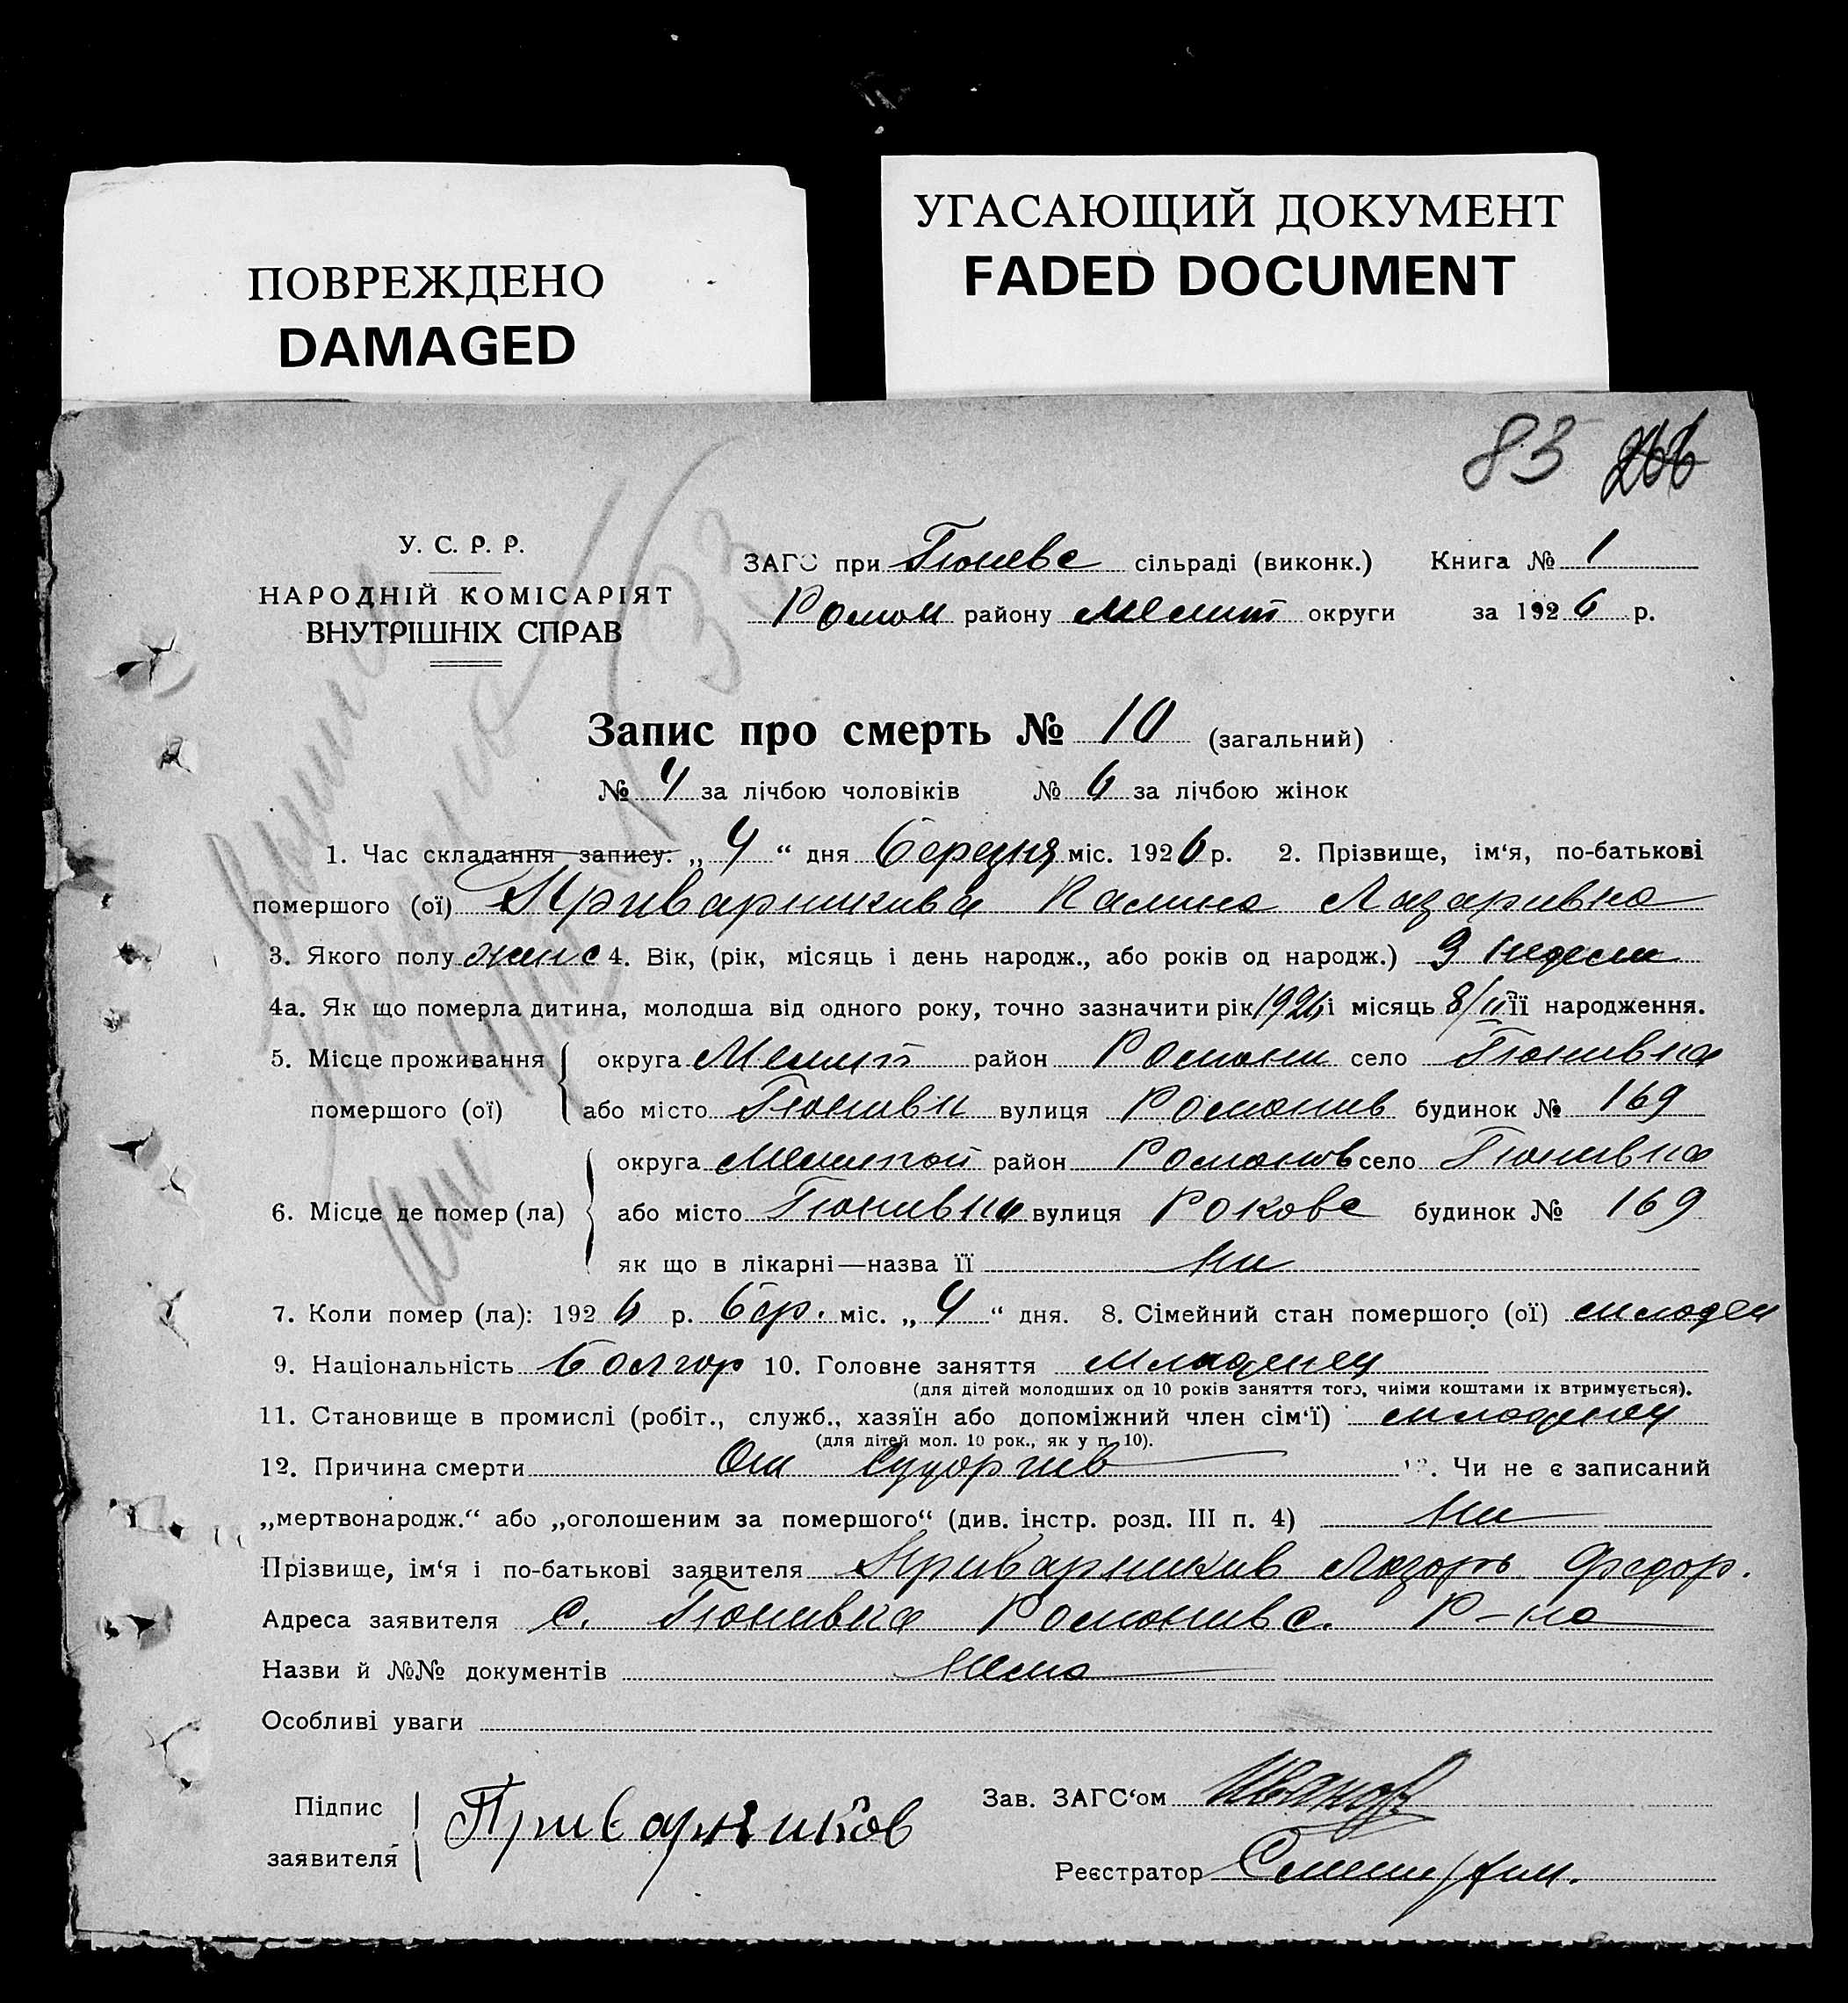 ПОВРЕЖДЕНО
DAMAGED
УГАСАЮЩИЙ ДОКУМЕНТ
FADED DOCUMENT
83
У. С. Р. Р.
НАРОДНІЙ КОМІСАРІЯТ
ВНУТРІШНІХ СПРАВ
ЗАГС при Тюневс сільраді (виконк.) Книга № 1
Роман району Мелит округи за 1926 р.
33
Запис про смерть № 10 (загальний)
№ 4 за лічбою чоловіків № 6 за лічбою жінок
1. Час складання запису: „ 4 “ дня березня міс. 1926 р. 2. Прізвище, ім‘я, по-батькові
помершого (ої) Приварникива Калина Лазаривна
3. Якого полу жинс 4. Вік, (рік, місяць і день народж., або років од народж.) 3 недели
4а. Як що померла дитина, молодша від одного року, точно зазначити рік 1926 і місяць 8/II її народження.
5. Місце проживання округа Мелит район Романи село Тюнивка
помершого (ої) або місто Тюнивки вулиця Романив будинок № 169
округа Мелитпол район Романов село Тюнивка
6. Місце де помер (ла) або місто Тюнивка вулиця Рокова будинок № 169
як що в лікарні—назва її ни
7. Коли помер (ла): 1926 р. бер. міс. „ 4 “ дня. 8. Сімейний стан помершого (ої) младен
9. Національність болгар 10. Головне заняття младенец
(для дітей молодших од 10 років заняття того, чиїми коштами їх втримується).
11. Становище в промислі (робіт., служб., хазяїн або допоміжний член сім‘ї) младенец
(для дітей мол. 10 рок., як у п. 10).
12. Причина смерти От судоргив 13. Чи не є записаний
„мертвонародж.“ або „оголошеним за помершого“ (див. інстр. розд. III п. 4) ни
Прізвище, ім‘я і по-батькові заявителя Приварникив Лазарь Федор.
Адреса заявителя с. Тюнивка Романивс. Р-на
Назви й №№ документів нема
Особливі уваги
Підпис
заявителя
Приварников
Зав. ЗАГС‘ом Иванов
Реєстратор